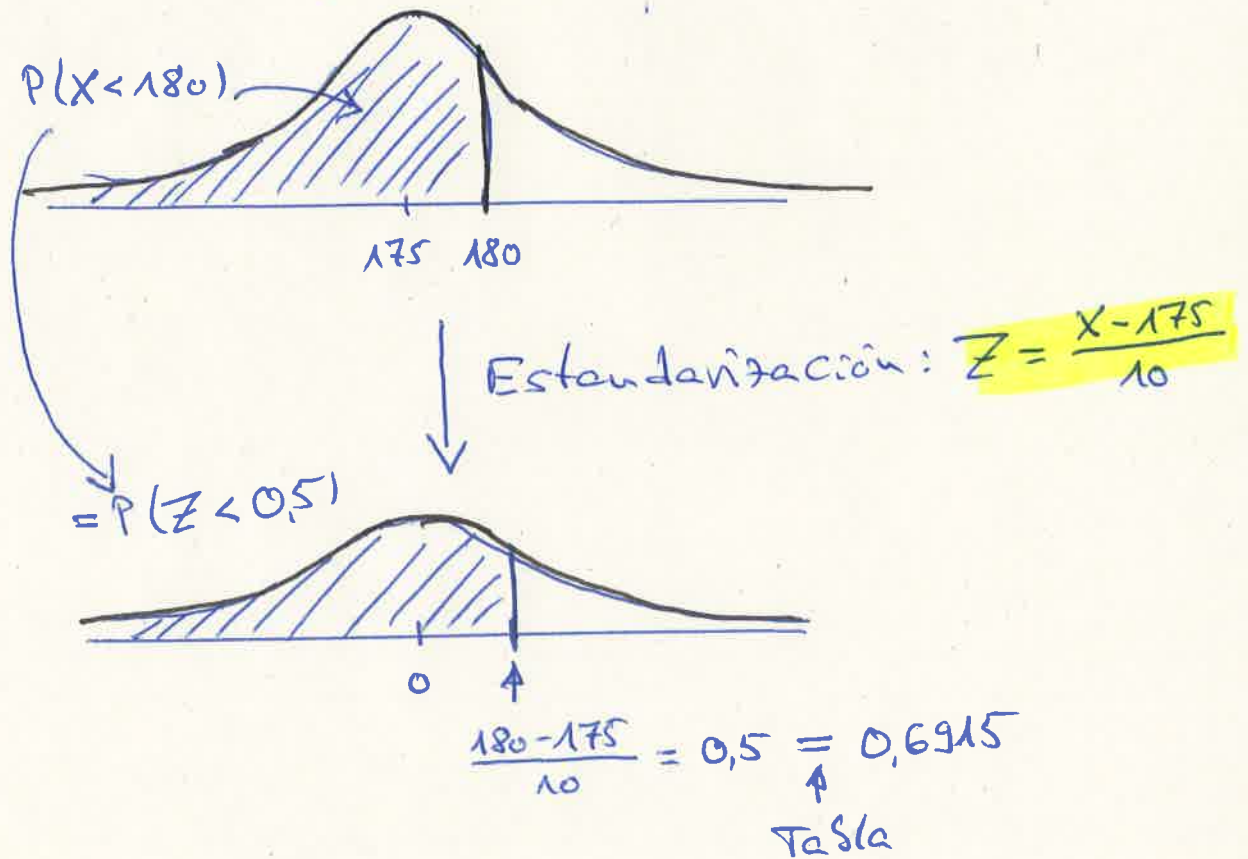 P(X<180)
175 180
Estandarización: Z = (X-175)/10
= P(Z < 0,5)
0
(180-175)/10 = 0,5 = 0,6915
Tabla